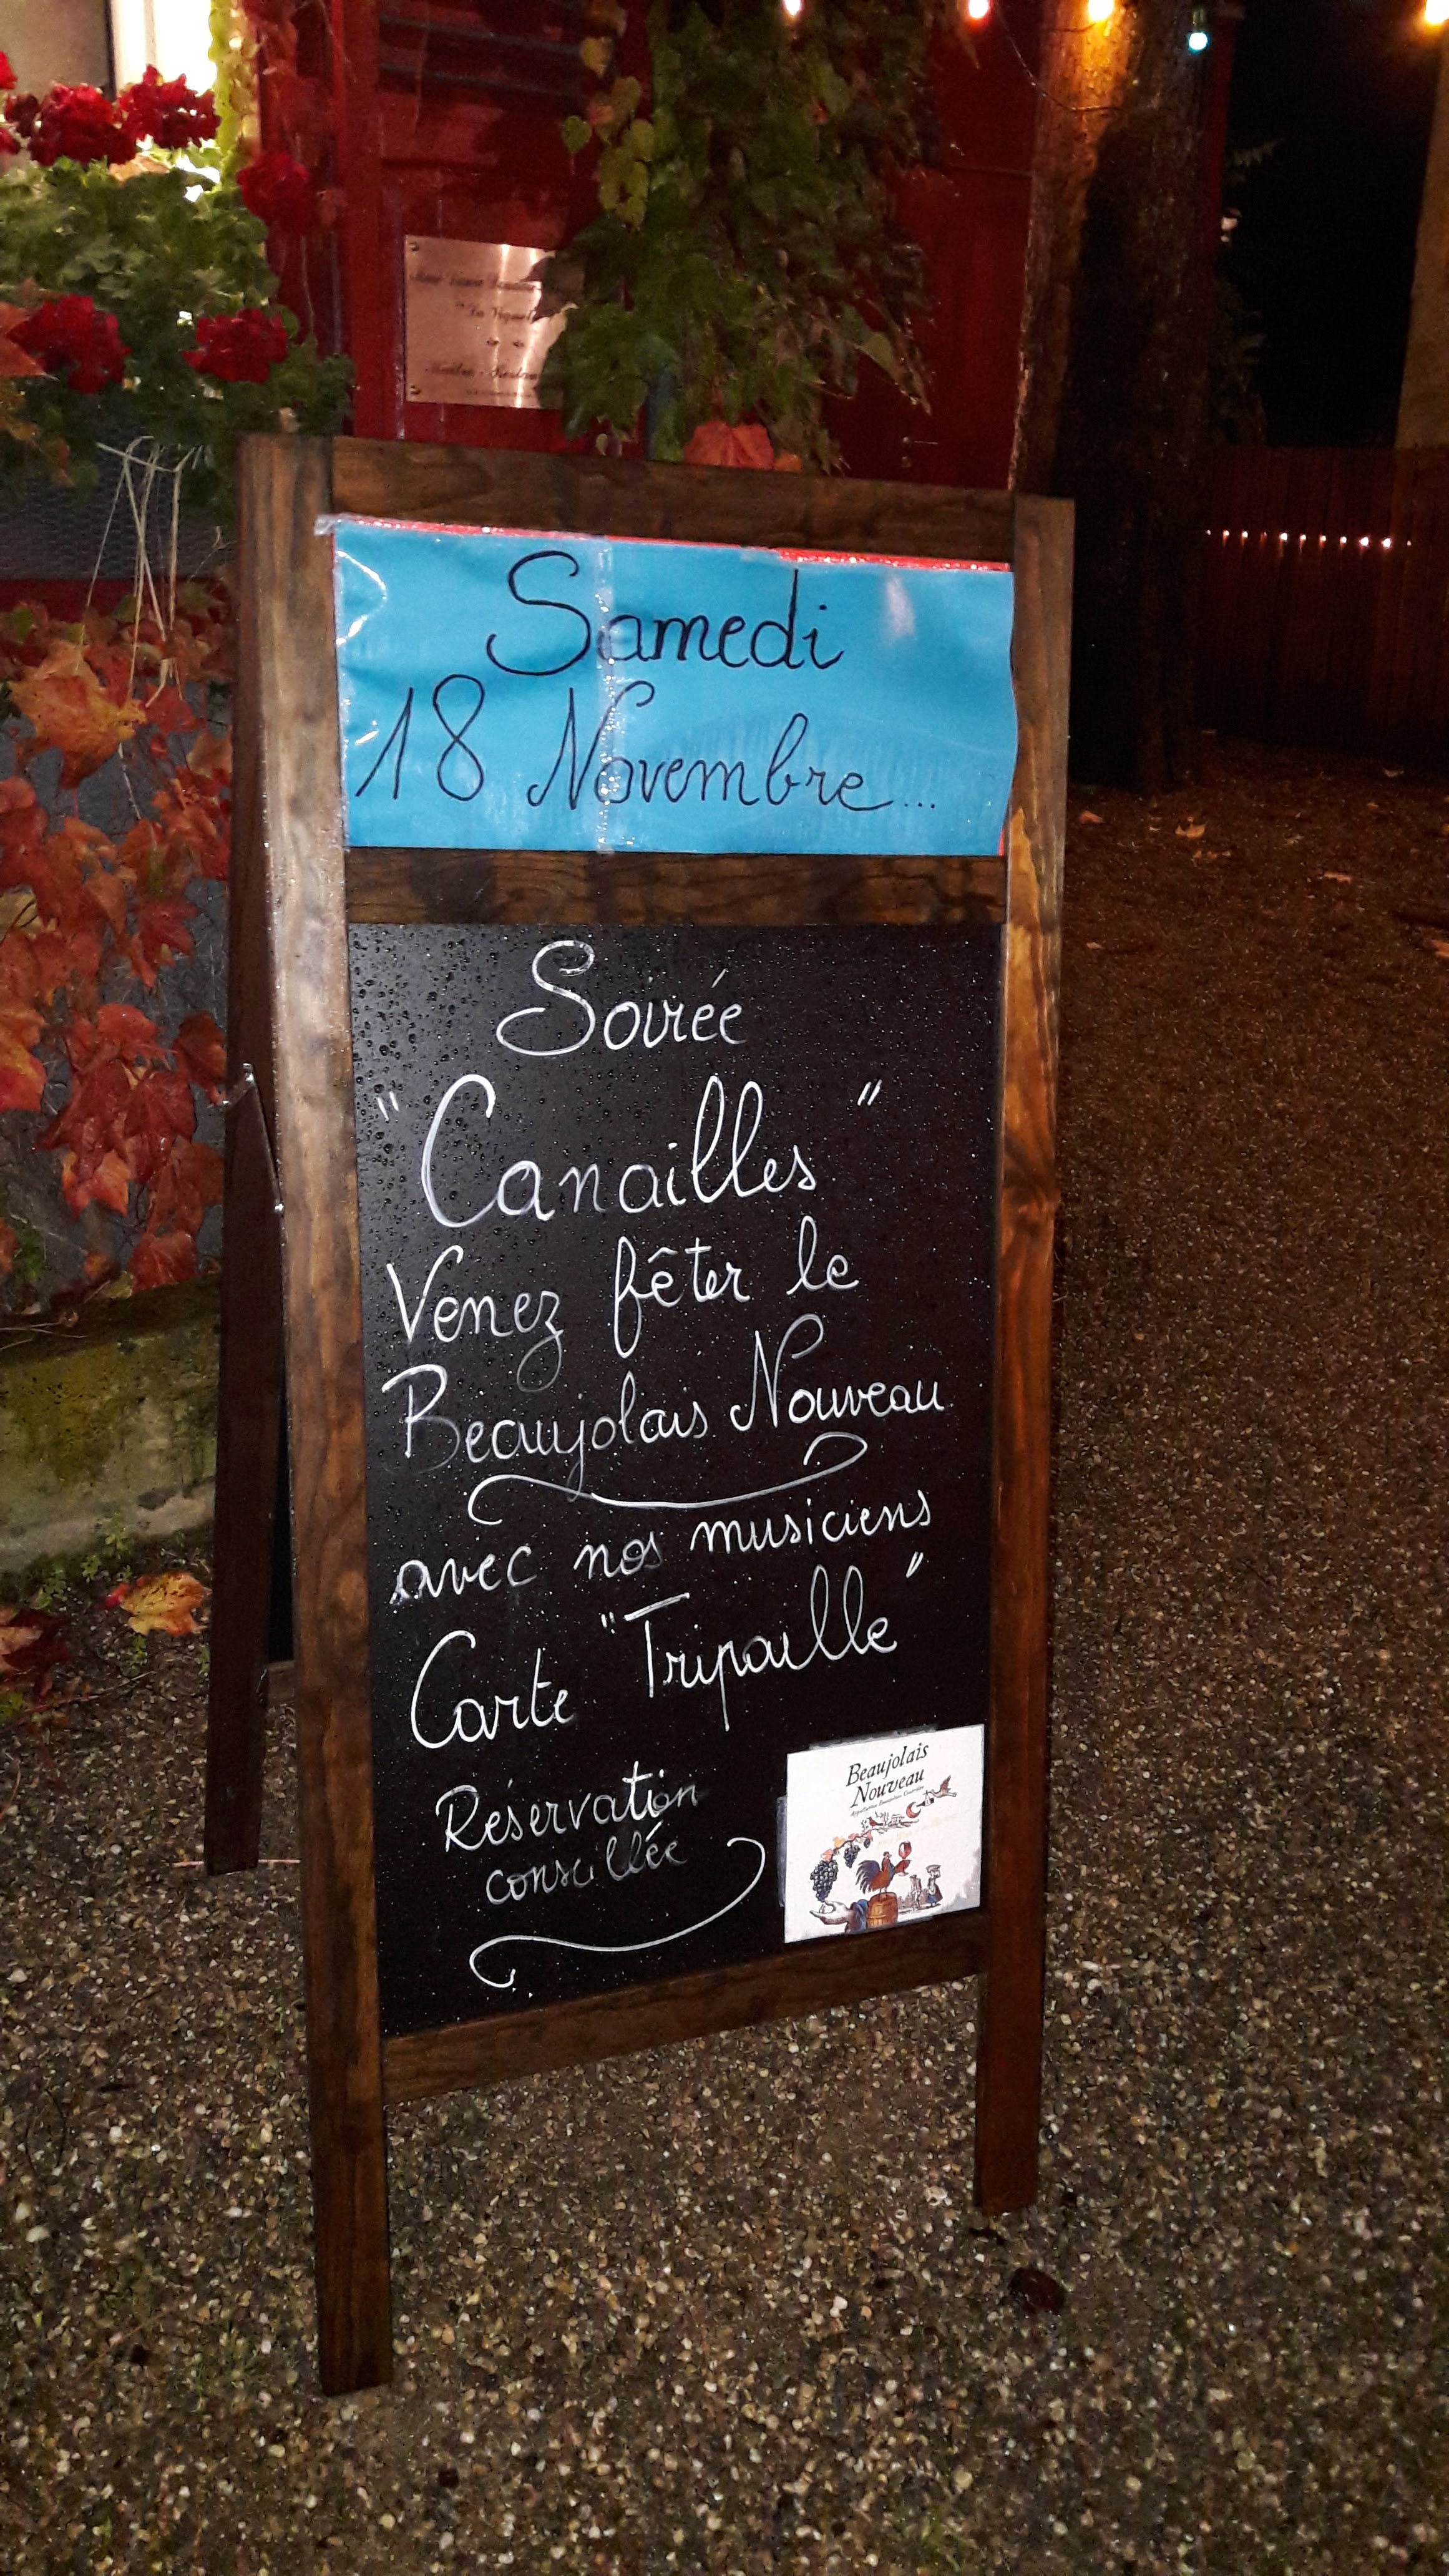 "La
Samedi
18 Novembre...
Soirée
"Canailles"
Venez fêter le
Beaujolais Nouveau
avec nos musiciens
Carte "Tripaille"
Réservation
conseillée
Beaujolais
Nouveau